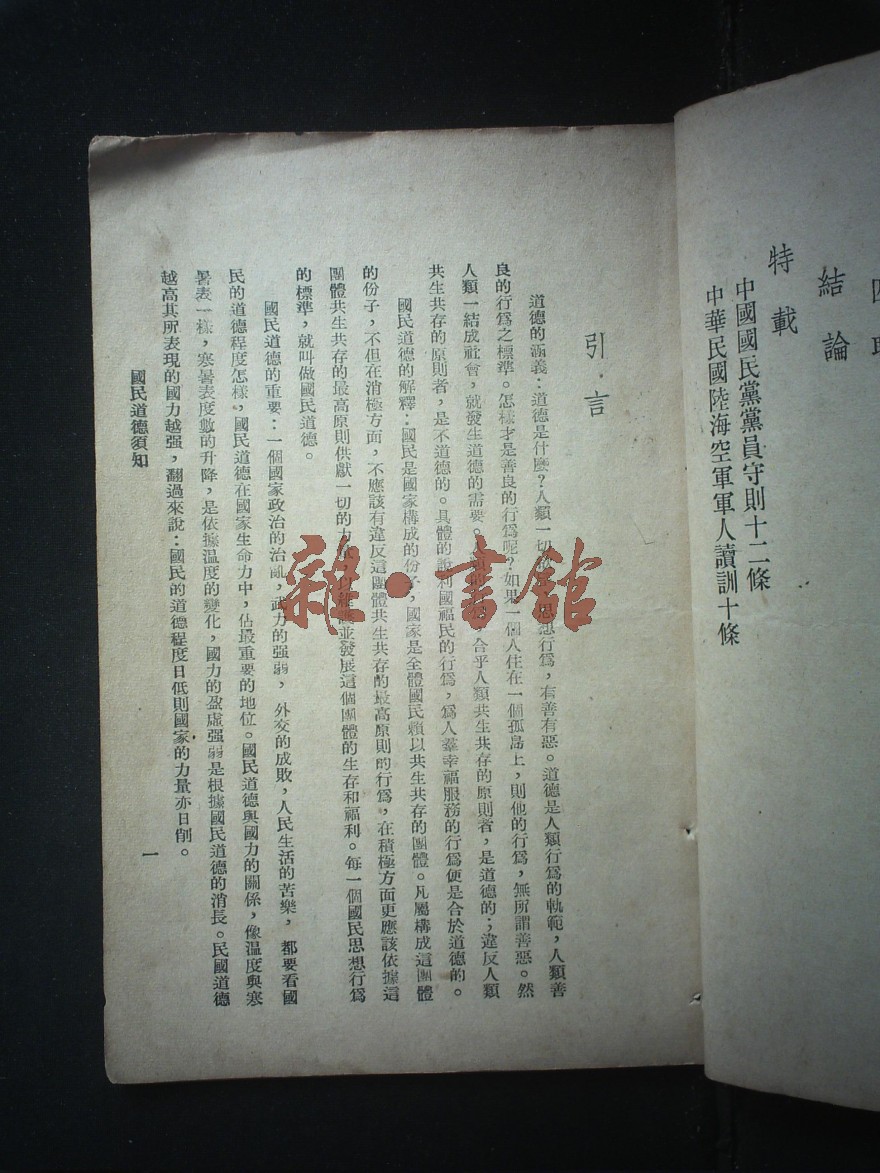 結論
特載
中國國民黨黨員守則十二條
中華民國陸海空軍軍人讀訓十條
引·言
道德的涵義：道德是什麼？人類一切 思想行爲，有善有惡。道德是人類行爲的軌範，人類善
良的行爲之標準。怎樣才是善良的行爲呢？如果一個人住在一個孤島上，則他的行爲，無所謂善惡。然
人類一結成社會，就發生道德的需要。人類的 合乎人類共生共存的原則者，是道德的；違反人類
共生共存的原則者，是不道德的。具體的說利國福民的行爲，爲人羣幸福服務的行爲便是合於道德的。
國民道德的解釋：國民是國家構成的份子，國家是全體國民賴以共生共存的團體。凡屬構成這團體
的份子，不但在消極方面，不應該有違反這團體共生共存的最高原則的行爲，在積極方面更應該依據這
團體共生共存的最高原則供獻一切的力量，以維護並發展這個團體的生存和福利。每一個國民思想行爲
的標準，就叫做國民道德。
國民道德的重要：一個國家政治的治亂，武力的强弱，外交的成敗，人民生活的苦樂，都要看國
民的道德程度怎樣，國民道德在國家生命力中，佔最重要的地位。國民道德與國力的關係，像温度與寒
暑表一樣，寒暑表度數的升降，是依據温度的變化，國力的盈虛强弱是根據國民道德的消長。民國道德
越高其所表現的國力越强，翻過來說：國民的道德程度日低則國家的力量亦日削。
國民道德須知
一
雜·書館